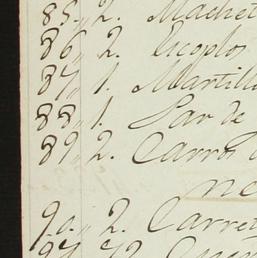 85.. 2. Machet
86.. 2. Escoplos
87.. 1. Martill
88.. 1. Par de
89.. 2. Carros
ne
90.. 2. Carret